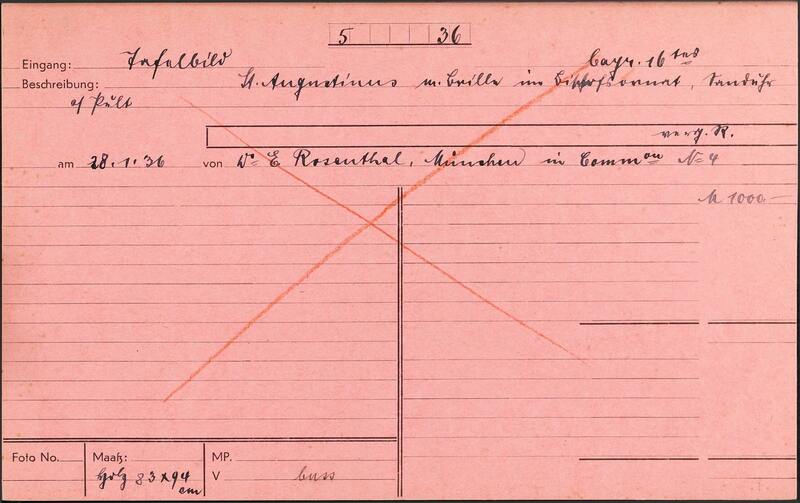 5 36
Eingang: Tafelbild bayr. 16 tes
Beschreibung: St. Augustinus m. Brille im Bischofsornat, Sanduhr
a/ Pult
verg. R.
am 28.1.36 von Dr E Rosenthal, München in Common N= 4
M 1000.-
Foto No. Maaß: MP.
Holz 83 x 94 cm V buss